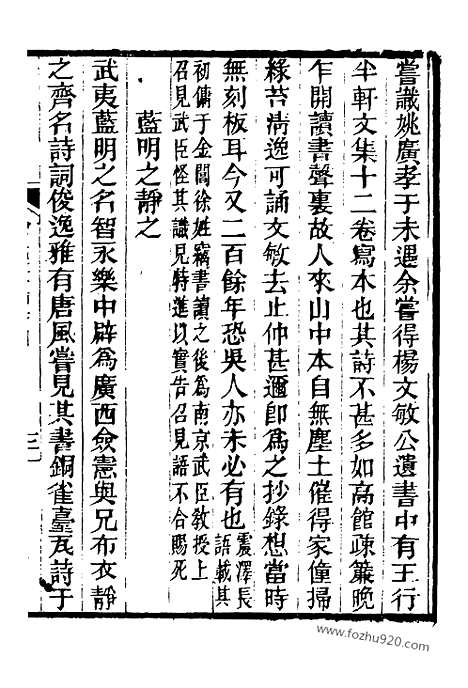 嘗識姚廣孝于未遇余嘗得楊文敏公遺書中有王行
半軒文集十二卷寫本也其詩不甚多如高館疎簾晚
乍開讀書聲裏故人來山中本自無塵土催得家僮掃
綠苔淸逸可誦文敏去止仲甚邇卽爲之抄錄想當時
無刻板耳今又二百餘年恐吳人亦未必有也震澤長
語載其
初傭于金閶徐姓竊書讀之後爲南京武臣敎授上
召見武臣怪其識見特進以實告召見語不合賜死
藍明之靜之
武夷藍明之名智永樂中辟爲廣西僉憲與兄布衣靜
之齊名詩詞俊逸雅有唐風嘗見其書銅雀臺瓦詩于
三
www.fozhu920.com